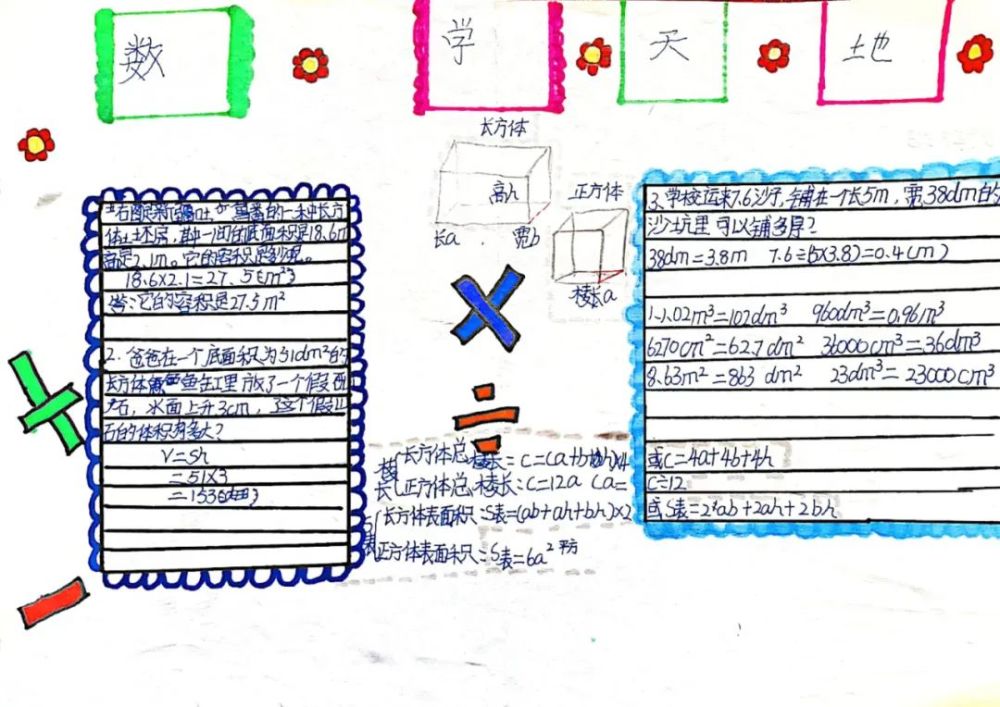 数 学 天 土地
长方体
高h
长a
宽b
正方体
棱长a
体土坯房,其中一间的底面积是18.6m
高是2.1m。它的容积是多少呢。
18.6×2.1=27.5(m³)
答:它的容积是27.5m²
2.爸爸在一个底面积为51dm²的
长方体鱼缸里放了一个假
石,水面上升3cm,这个假山
石的体积有多大?
V=Sh
=51×3
=153
棱长
长方体总棱长=C=(a+b+h)×4
正方体总棱长:C=12a Ca=
长方体表面积:S表=(ab+ah+bh)×2
正方体表面积:S表=6a² 平方
3.学校运来7.6沙子,铺在一个长5m,宽38dm的
沙坑里可以铺多厚?
38dm=3.8m 7.6÷(5×3.8)=0.4(m)
1.02m³=102dm³ 960dm³=0.96m³
6270cm²=62.7dm² 36000cm³=36dm³
8.63m²=863dm² 23dm³=23000cm³
或C=4a+4b+4h
C÷12
或S表=2ab+2ah+2bh